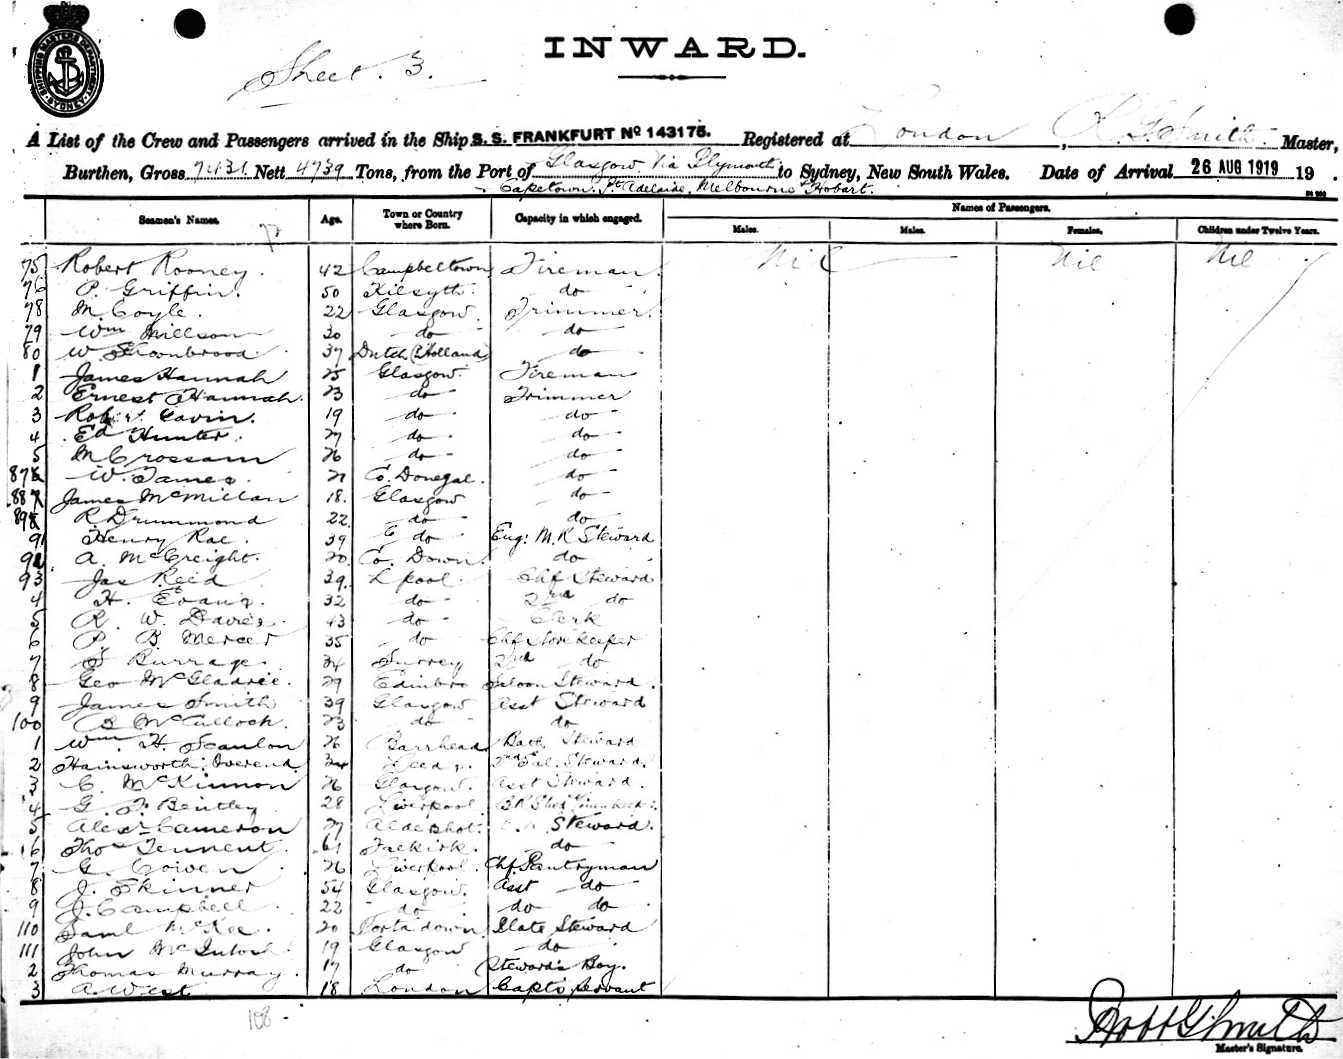 SHIPPING MASTERS DEPARTMENT SYDNEY
INWARD.
Sheet. 3.
A List of the Crew and Passengers arrived in the Ship S.S. FRANKFURT Nº 143175. Registered at London, R. G. Smith. Master,
Burthen, Gross 7431 Nett 4739 Tons, from the Port of Glasgow Via Plymouth to Sydney, New South Wales. Date of Arrival 26 AUG 1919 19 .
Capetown. Pt Adelaide, Melbourne Hobart.
Seamen's Names. Age. Town or Country where Born. Capacity in which engaged. Names of Passengers.
Males. Males. Females. Children under Twelve Years.
75 Robert Rooney. 42 Campbeltown Fireman. Nil Nil Nil
76 P. Griffin. 50 Kilsyth do
78 M Coyle. 22 Glasgow. Trimmer.
79 Wm Millson 30 do do
80 W. 37 Dutch (Holland) do
1 James Hannah 25 Glasgow. Fireman
2 Ernest Hannah. 23 do Trimmer
3 Robert Cavin. 19 do do
4 Ed Hunter. 27 do do
5 M Crossam 26 do do
87 W. James. 21 Co. Donegal. do
88 James McMillan 18. Glasgow do
89 R Drummond 22 do do
91 Henry Rae. 39 do Eng: M.R Steward
92 A. McCreight. 20 Co. Down. do
93 Jas Reid 39. L'pool. Chf Steward
4 H. Evans. 32 do 2nd do
5 R. W. Davies. 43 do Clerk
6 P. B. Mercer 35 do Chf Storekeeper
7 S Burrage. 34 Surrey 2nd do
8 Geo 29 Edinbro Saloon Steward.
9 James Smith 39 Glasgow Asst Steward
100 B McCulloch. 23 do do
1 Wm. H. Scanlon 26 Barrhead Bath Steward
2 Hainsworth Overend 34 Leeds. 2nd Sal. Steward.
3 C. McKinnon 26 Glasgow. Asst Steward.
4 G. F. Bentley 28 Liverpool
5 Alexr Cameron 27 Aldershot. Steward.
6 Thos Tennent. 61 Falkirk. do
7 G. Cowen 26 Liverpool. Chf. Pantryman
8 J. Skinner 54 Glasgow. Asst do
9 J. Campbell 22 do do do
110 Saml McKee. 20 Portadown Plate Steward
111 John McIntosh. 19 Glasgow do
2 Thomas Murray. 17 do Steward's Boy.
3 A. West 18 London Capt's Servant
108 -
Robt G Smith
Master's Signature.